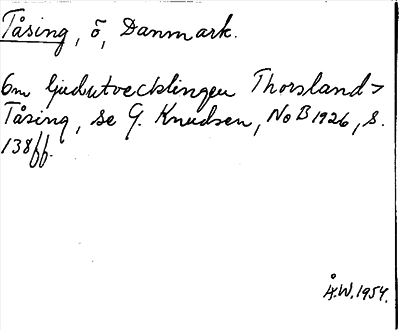 Tåsing, ö, Danmark.
Om ljudutvecklingen Thorsland>
Tåsing, se G. Knudsen, NoB 1926, s.
138ff.
Å.W. 1954.